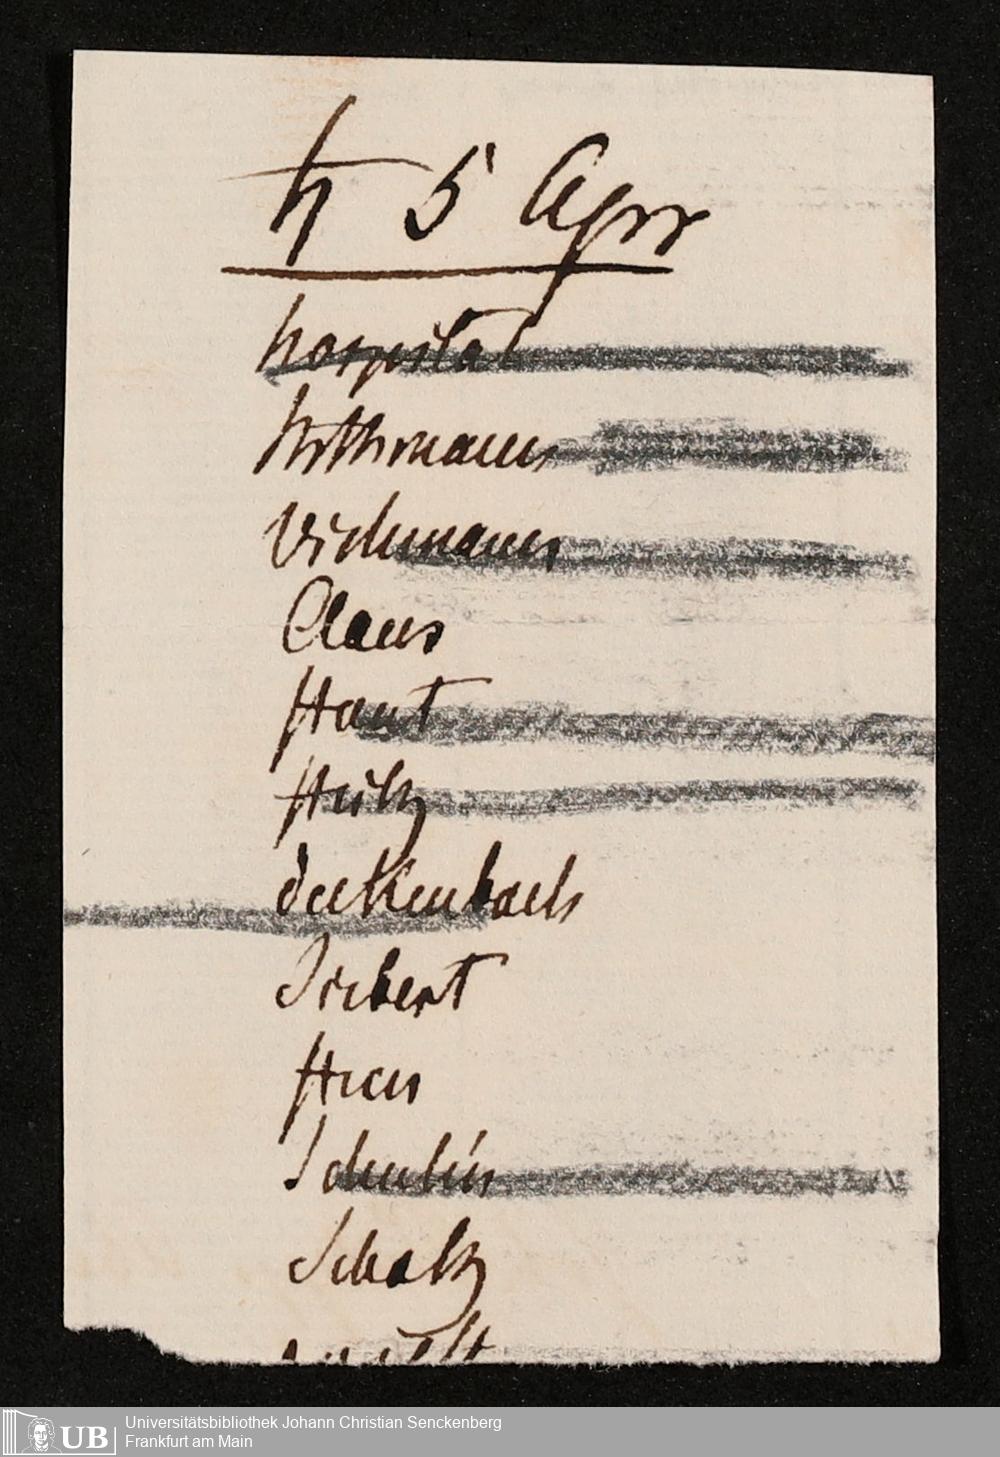 ♄ 5 Apr
hospital
Hothmann
Vichmann
Claus
Haut
Hütz
deckenbach
Siebert
Heus
Schulin
Schatz
Universitätsbibliothek Johann Christian Senckenberg
Frankfurt am Main
UB